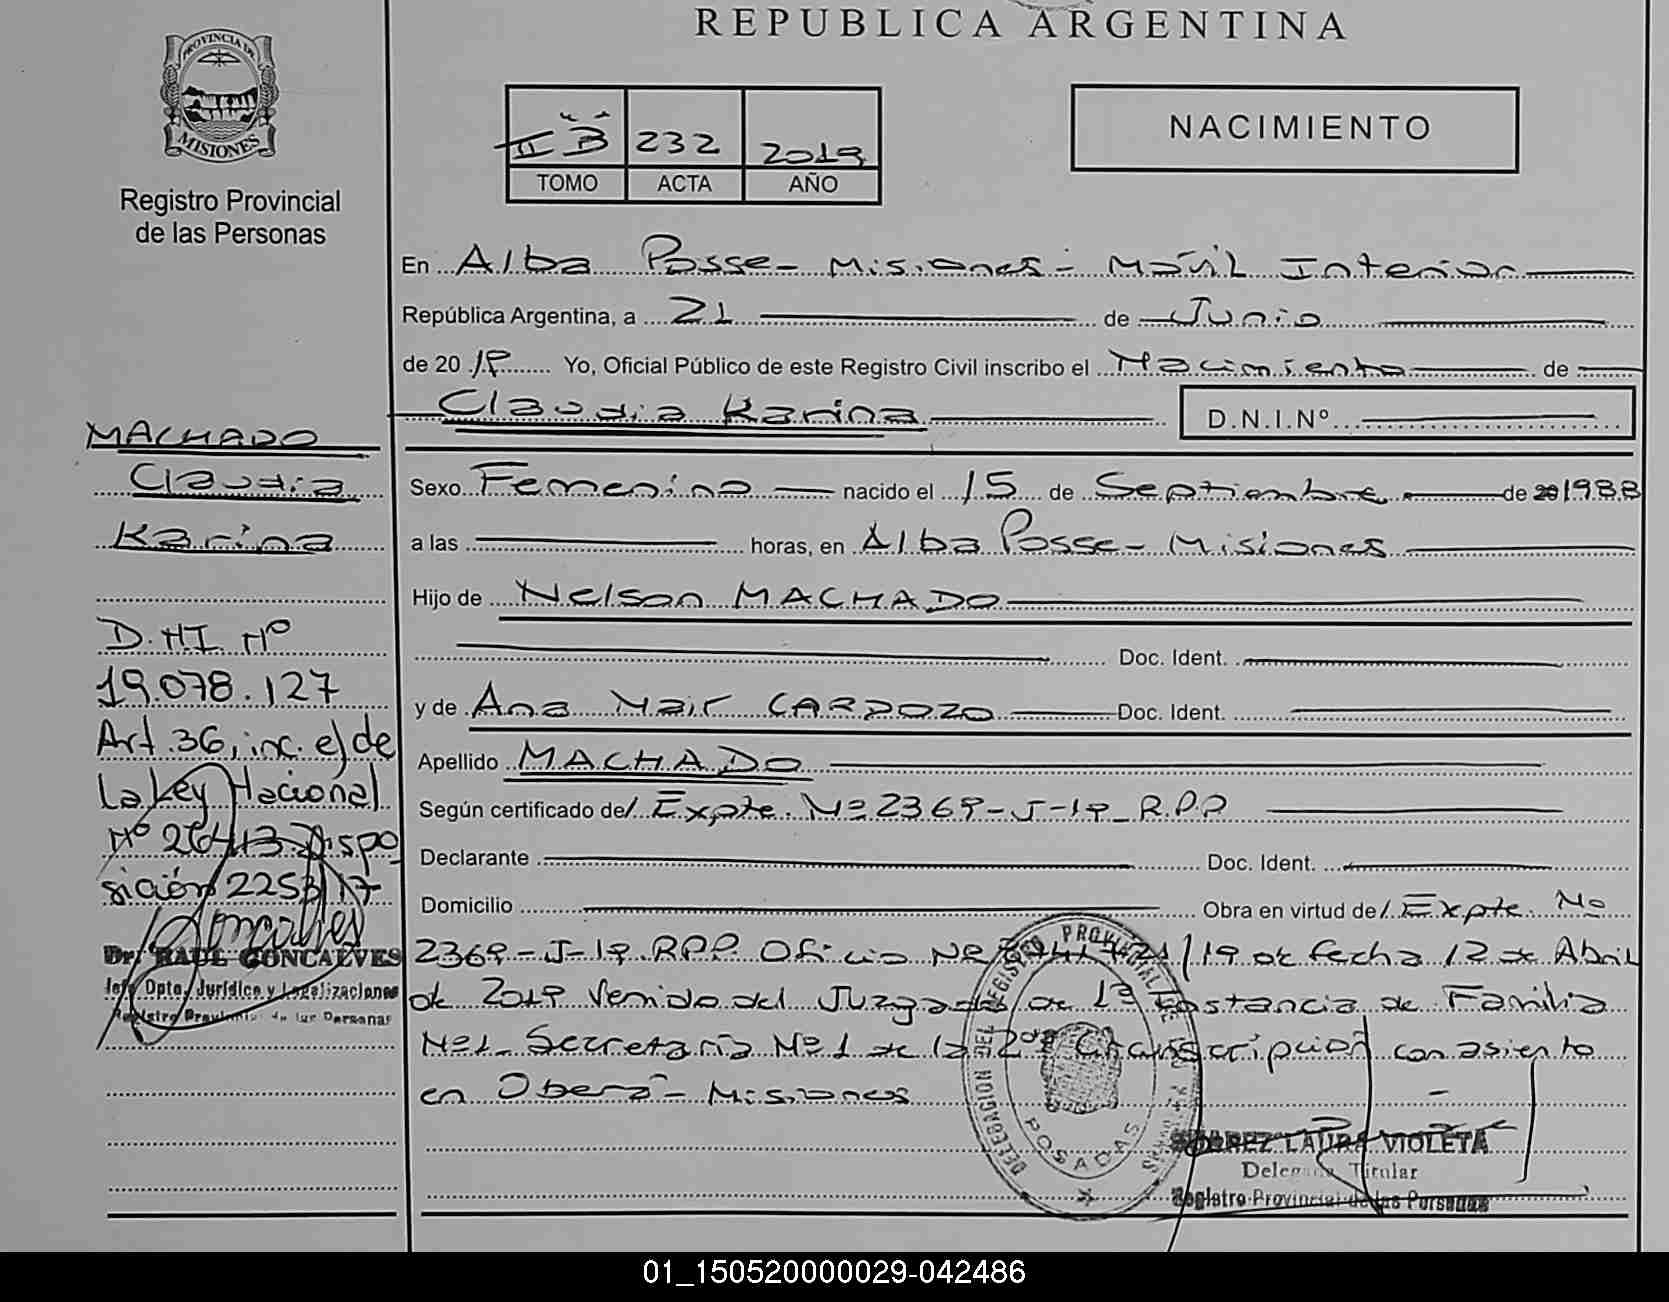 REPUBLICA ARGENTINA
PROVINCIA DE
MISIONES
Registro Provincial
de las Personas
II B 232 2019
TOMO ACTA AÑO
NACIMIENTO
En Alba Posse - Misiones - Móvil Interior
República Argentina, a 21 de Junio
de 20 19 Yo, Oficial Público de este Registro Civil inscribo el Nacimiento de
Claudia Karina D.N.I.Nº
Sexo Femenino nacido el 15 de Septiembre de 1988
a las horas, en Alba Posse - Misiones
Hijo de Nelson MACHADO
Doc. Ident.
y de Ana Nair CARDOZO Doc. Ident.
Apellido MACHADO
Según certificado de/ Expte. Nº 2369-J-19_R.P.P
Declarante Doc. Ident.
Domicilio Obra en virtud de/ Expte. Nº
2369-J-19.RPP. Oficio /19 de fecha 12 de Abril
de 2019 Venido del Juzgado de 1ra Instancia de Familia
Nº1_ Secretaría Nº1 de la 2da Circunscripción con asiento
en Oberá - Misiones
MACHADO
Claudia
Karina
D.NI. Nº
19.078.127
Art.36, inc. e) de
La Ley Nacional
Nº 26413. Dispo
sición 2253/17
Goncalves
Dr. RAUL GONCALVES
Jefe Dpto. Jurídico y Legalizaciones
Registro Provincial de las Personas
DELEGACION DEL REGISTRO PROVINCIAL DE LAS PERSONAS
POSADAS
SUAREZ LAURA VIOLETA
Delegada Titular
Registro Provincial de las Personas
01_150520000029-042486